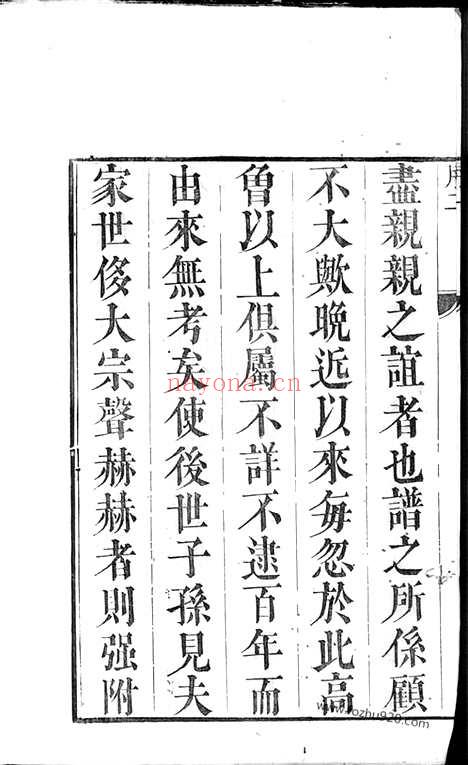 盡親親之誼者也譜之所係顧
不大歟晩近以來每忽於此高
曾以上俱屬不詳不逮百年而
由來無考矣使後世子孫見夫
家世侈大宗聲赫赫者則强附
nayona.cn
www.kongfz.com